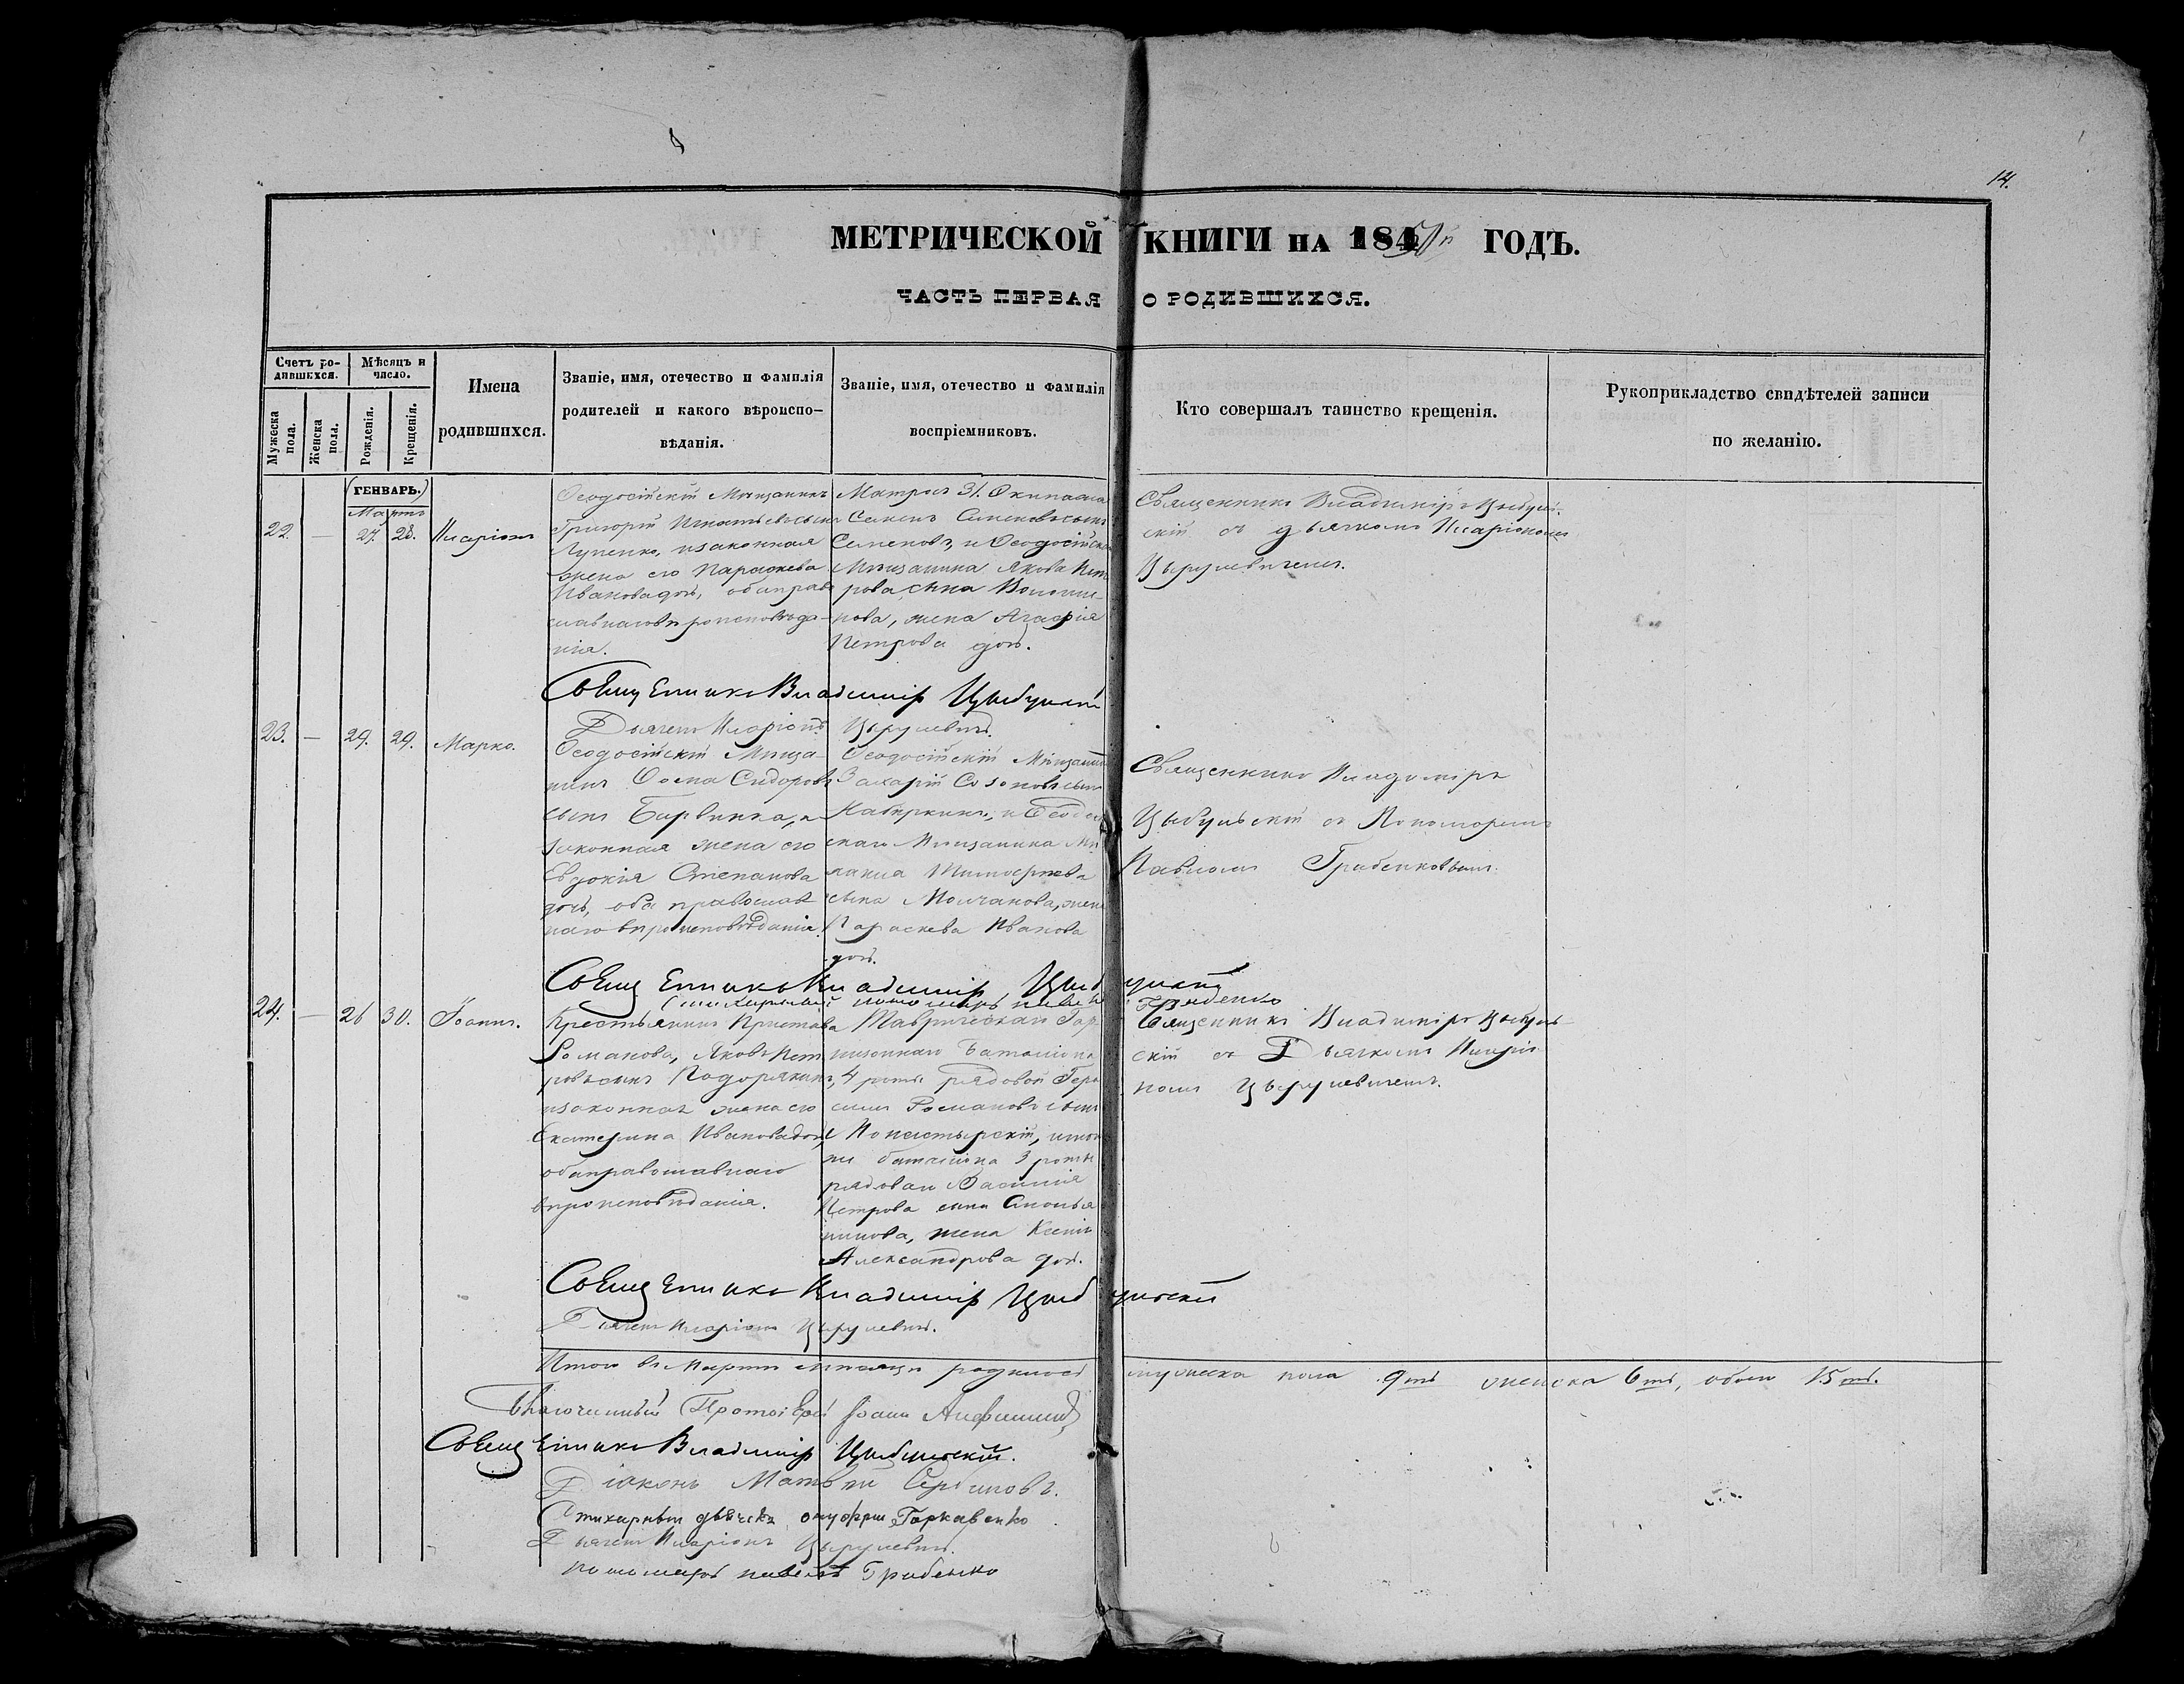 14.
МЕТРИЧЕСКОЙ КНИГИ НА 184 ГОДЪ.
ЧАСТЬ ПЕРВАЯ О РОДИВШИХСЯ.
Счетъ родившихся.
Мужеска пола.
Женска пола.
Мѣсяцъ и число.
Рожденія.
Крещенія.
Имена родившихся.
Званіе, имя, отечество и фамилія
родителей и какого вѣроиспо-
вѣданія.
Званіе, имя, отечество и фамилія
воспріемниковъ.
Кто совершалъ таинство крещенія.
Рукоприкладство свидѣтелей записи
по желанію.
ГЕНВАРЬ.
Мартъ
22. — 27. 28. Иларіонъ
Ѳеодосійскій Мѣщанинъ
Григорій Игнатьевъ сынъ
изаконная
жена его Параскева
Ивановадочь, обаправо
славнаговѣроисповѣда-
нія.
Матросъ 31. Окипажа
Семенъ Семеновъ сынъ
Семеновъ, и Ѳеодосійскаго
Мѣщанина Якова Пет
рова сына
нова, жена Агафія
Петрова дочь.
Священникъ Владимірѣ Цыбуль-
скій съ дьячкомъ Иларіономъ
Цырулевичемъ.
Священникъ Владимір Цыбульскій
Дьячекъ Иларіонъ Цырулевичъ.
23. — 29. 29. Марко.
Ѳеодосійскій Мѣща-
нинъ Ѳома Сидоровъ
сынъ Барвинка, и
законная жена его
Евдокія Степанова
дочь, оба православ
наго вѣроисповѣданія.
Ѳеодосійскій Мѣщанинъ
Захарій Созоновъ сынъ
и Ѳеодосій
скаго Мѣщанина
Тимоѳеева
сына Молчанова, жена
Параскева Иванова
дочь.
Священникъ Владиміръ
Цыбульскій съ Пономаремъ
Павломъ Грабенковымъ.
Священникъ Владимір Цыбульскій
Стихарный пономарь Павелъ Грабенко
24. — 26 30. Іоаннъ.
Крестьянинъ Пристава
Романова, Яковъ Пет
ровъ сынъ
изаконная жена его
Екатерина Ивановадочь,
обаправославнаго
вѣроисповѣданія.
Таврическаго Гар
низоннаго Баталіона
4 роты рядовой Гера
симъ Романовъ сынъ
Монастырскій, итого
же баталіона 3 роты
рядоваго Василія
Петрова сына
жена Ксенія
Александрова дочь.
Священникъ Владиміръ Цыбуль-
скій съ Дьячкомъ Иларіо
номъ Цырулевичемъ.
Священникъ Владимір Цыбульскій
Дьячекъ Иларіонъ Цырулевичъ.
Итого въ Мартѣ мѣсяцѣ родилось мужеска пола 9ть женска 6ть, обоего 15ть.
Благочинный Протоіерей Іоаннъ
Священникъ Владимір Цыбульскій.
Діаконъ Матвѣй Сербиновъ.
Стихарный дьячекъ онуфрій Гаркавенко
Дьячекъ Иларіонъ Цырулевичъ.
пономарь павелъ Грабенко